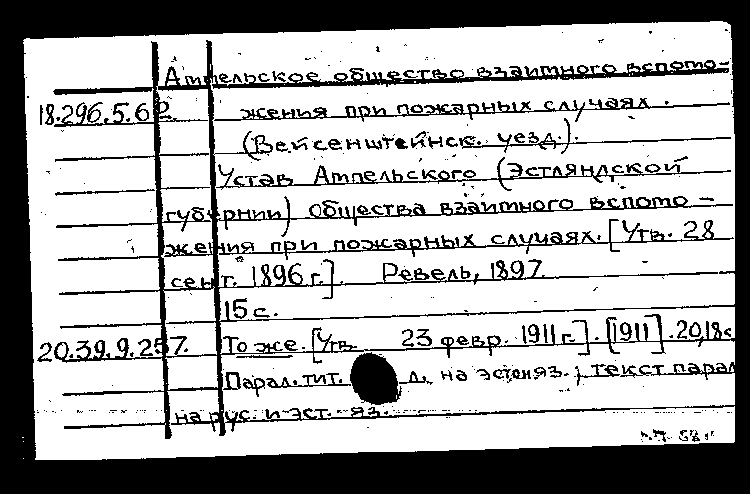 Ампельское общество взаимного вспомо-
18.296.5.62. жения при пожарных случаях.
(Вейсенштейнск. уезд.).
Устав Ампельского (Эстляндской
губернии) общества взаимного вспомо-
жения при пожарных случаях. [Утв. 28
сент. 1896 г.]. Ревель, 1897.
15 с.
20.39.9.257. То же. [Утв. 23 февр. 1911 г.]. [1911]. 20,18 с
Парал. тит. л. на эстон яз.; текст парал
на рус. и эст. яз.